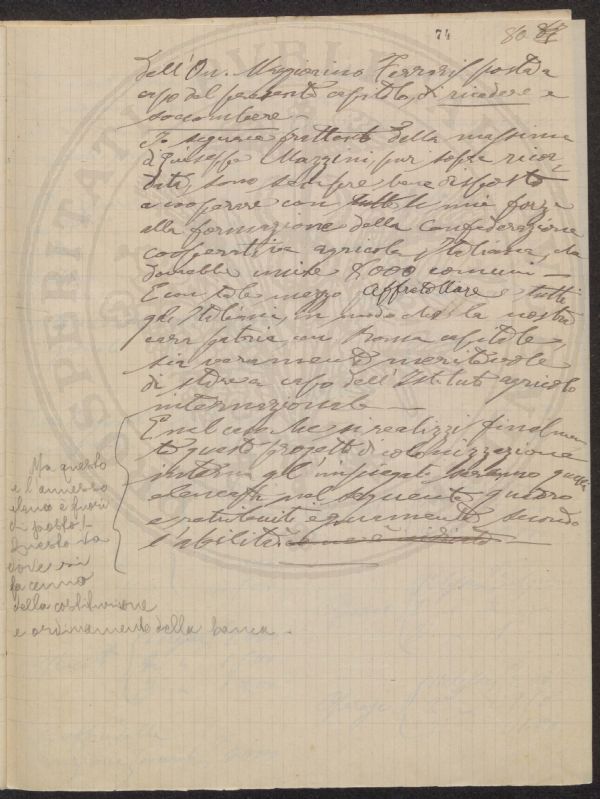 74
80
dell'On. Maggiorino Ferraris posta a
capo del presente capitolo, di ricadere e
soccombere —
Io seguace frattanto della massima
di Giuseppe Mazzini, pur sopra ricor-
data, sono sempre ben disposto
a cooperare con tutte le mie forze
alla formazione della Confederazione
cooperativa agricola Italiana, da
unire 8000 comuni —
E con tale mezzo affratellare tutti
gli Italiani, in modo che la nostra
cara patria, con Roma capitale,
sia veramente meritevole
di stare a capo dell'Istituto agricolo
internazionale —
E nel caso che si realizzi finalmen-
te questo progetto di colonizzazione
interna gl'impiegati saranno quelli
elencati nel seguente quadro
e retribuiti equamente secondo
l'abilità
Ma questo
e l'annesso
elenco è fuori
di posto!
Questo va
dove si
fa cenno
della costituzione
e ordinamento della banca.